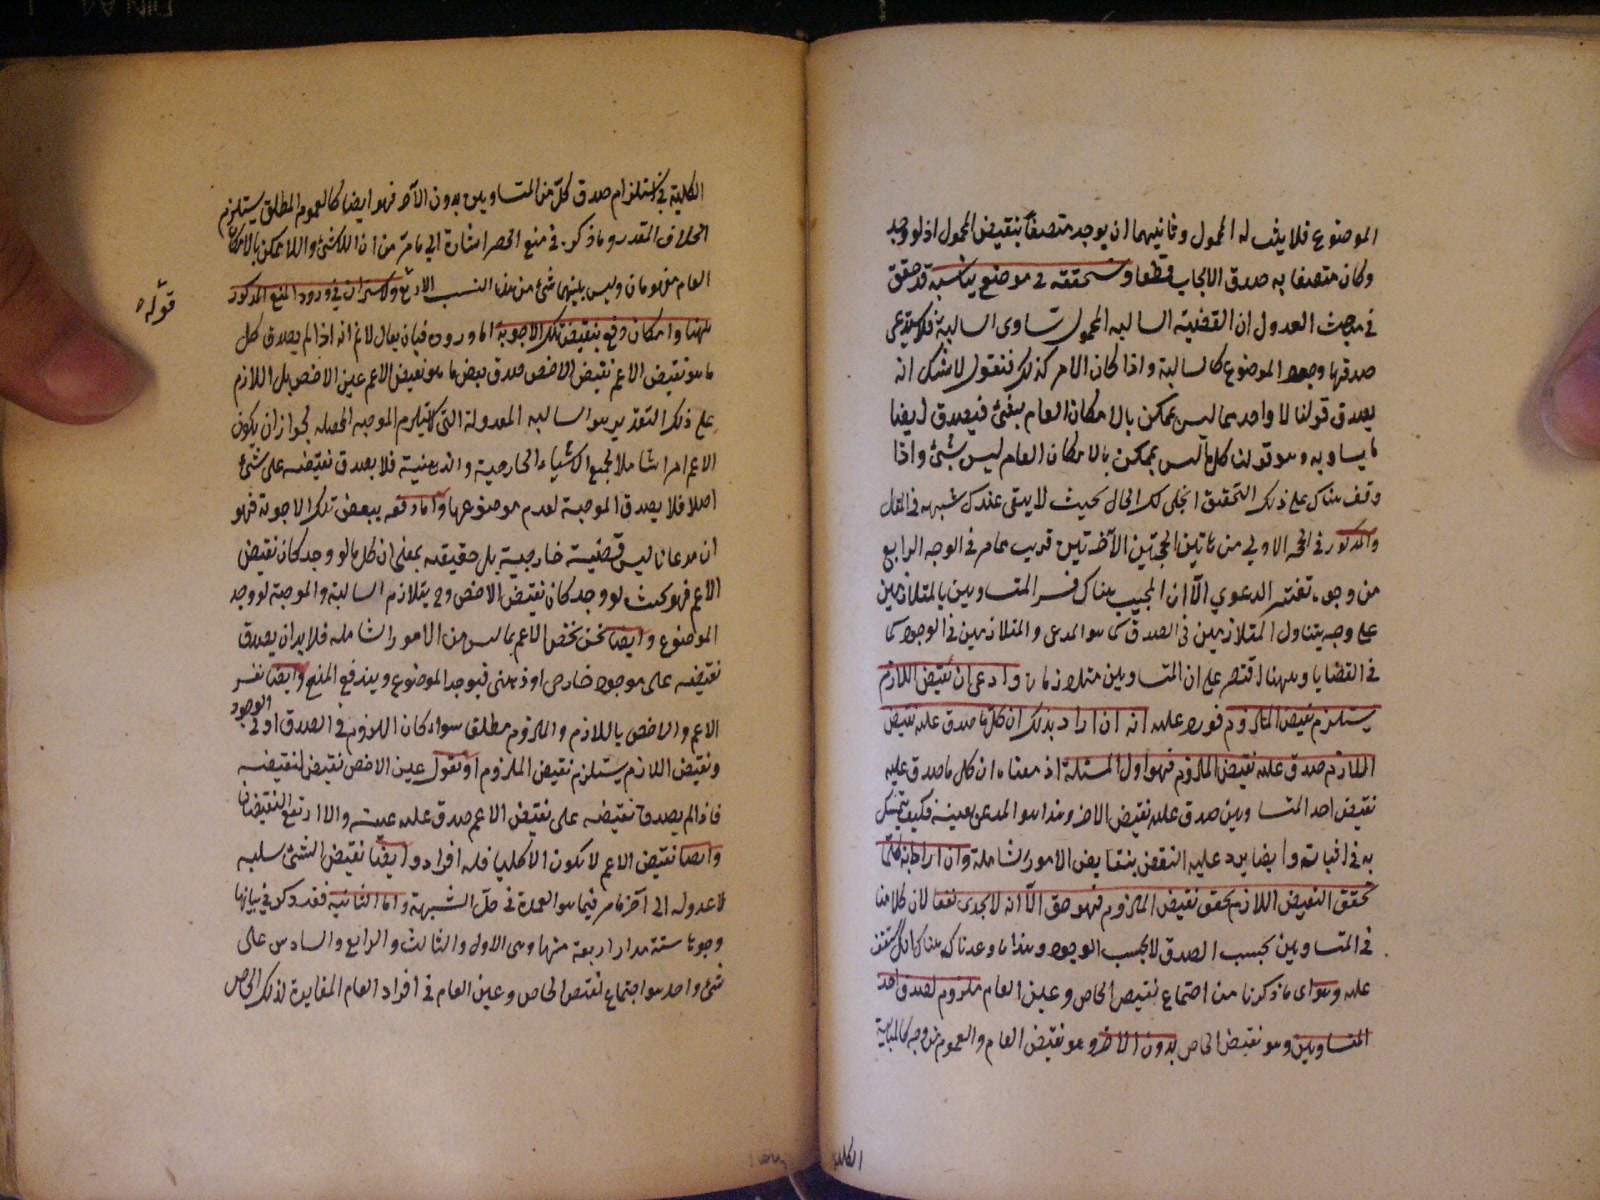 الموضوع فلا يثبت له المحمول وثانيهما ان يوجد متصفا بنقيض المحمول اذ لو وجد
وكان متصفا به صدق الايجاب قطعا وستحققه في موضع يناسبه قد حقق
في مبحث العدول ان القضية السالبة المحمول تساوى السالبة فلا يستدعى
صدقها وجود الموضوع كالسالبة واذا كان الامر كذلك فنقول لا شك انه
يصدق قولنا لا واحد مما ليس بممكن بالامكان العام بشئ فيصدق ايضا
ما يساويه وهو قولنا كل ما ليس بممكن بالامكان العام ليس بشئ واذا
وقف هناك على ذلك التحقيق انجلى لك الحال بحيث لا يبقى عندك شبهه في المقال
والمذكور في الاولى من هاتين الحجتين الآخرتين قريب مما مر في الوجه الرابع
من وجوه تغيير الدعوى الا ان المجيب هناك فسر المتساويين بالمتلازمين
على وجه يتناول المتلازمين في الصدق كما هو المدعى والمتلازمين في الوجود كما
في القضايا وههنا اقتصر على ان المتساويين متلازمان وادعى ان نقيض اللازم
يستلزم نقيض الملزوم فورد عليه انه ان اراد بذلك ان كل ما صدق عليه نقيض
اللازم صدق عليه نقيض الملزوم فهو اول المسئلة اذ معناه ان كل ما صدق عليه
نقيض احد المتساويين صدق عليه نقيض الاخر وهذا هو المدعى بعينه فكيف يتمسك
به في اثباته وايضا يرد عليه النقض بنقايض الامور الشاملة وان اراد انه كلما
تحقق النقيض اللازم تحقق نقيض الملزوم فهو حق الا انه لا يجدى نفعا لان كلامنا
في المتساويين بحسب الصدق لا بحسب الوجود وهذا ما وعدناك هناك انك ستقف
عليه وهو اى ما ذكرنا من اجتماع نقيض الخاص وعين العام ملزوم لصدق احد
المتساويين وهو نقيض الخاص بدون الاخر وهو نقيض العام والعموم من وجه كالمباينة
الكلية
الكلية في استلزام صدق كل من المتساويين بدون الآخر فهو ايضا كالعموم المطلق يستلزم
الخلاف المقدر وما ذكر في منع الحصر اشارة الى ما مر من ان اللاشئ واللاممكن بالامكان
العام مفهومان وليس بينهما شئ من هذه النسب الاربع ولا اشكال في ورود المنع المذكور
ههنا وامكان دفع بنقيض تلك الاجوبة اما وروده فبان يقال لا نم انه اذا لم يصدق كل
ما هو نقيض الاعم نقيض الاخص صدق بعض ما هو نقيض الاعم عين الاخص بل اللازم
على ذلك التقدير هو السالبه المعدولة التى لا يستلزم الموجبه المحصله لجواز ان يكون
الاعم امرا شاملا لجميع الاشياء الخارجية والذهنية فلا يصدق نقيضه على شئ
اصلا فلا يصدق الموجبة لعدم موضوعها واما دفعه ببعض تلك الاجوبة فهو
ان مدعانا ليس قضية خارجية بل حقيقيه بمعنى ان كل ما لو وجد كان نقيض
الاعم فهو كيث لو وجد كان نقيض الاخص وح يتلازم السالبة والموجبة لوجود
الموضوع وايضا نحن نخص الاعم بما ليس من الامور الشامله فلا بد ان يصدق
نقيضه على موجود خارجى او ذهنى فيوجد الموضوع ويندفع المنع وايضا نفسر
الاعم والاخص باللازم والملزوم مطلقا سواء كان اللزوم في الصدق او في الوجود
ونقيض اللازم يستلزم نقيض الملزوم او نقول عين الاخص نقيض لنقيضه
فاذا لم يصدق نقيضه على نقيض الاعم صدق عليه عينه والا ارتفع النقيضان
وايضا نقيض الاعم لا يكون الا كليا فله افراد وايضا نقيض الشئ سلبه
لا عدوله الى آخر ما مر فيما هو العمدة في حل الشبهة واما الثانية فقد ذكر في بيانها
وجوها ستة مدار اربعة منها وهى الاول والثالث والرابع والسادس على
شئ واحد هو اجتماع نقيض الخاص وعين العام في افراد العام المغايرة لذلك الخاص
قوله